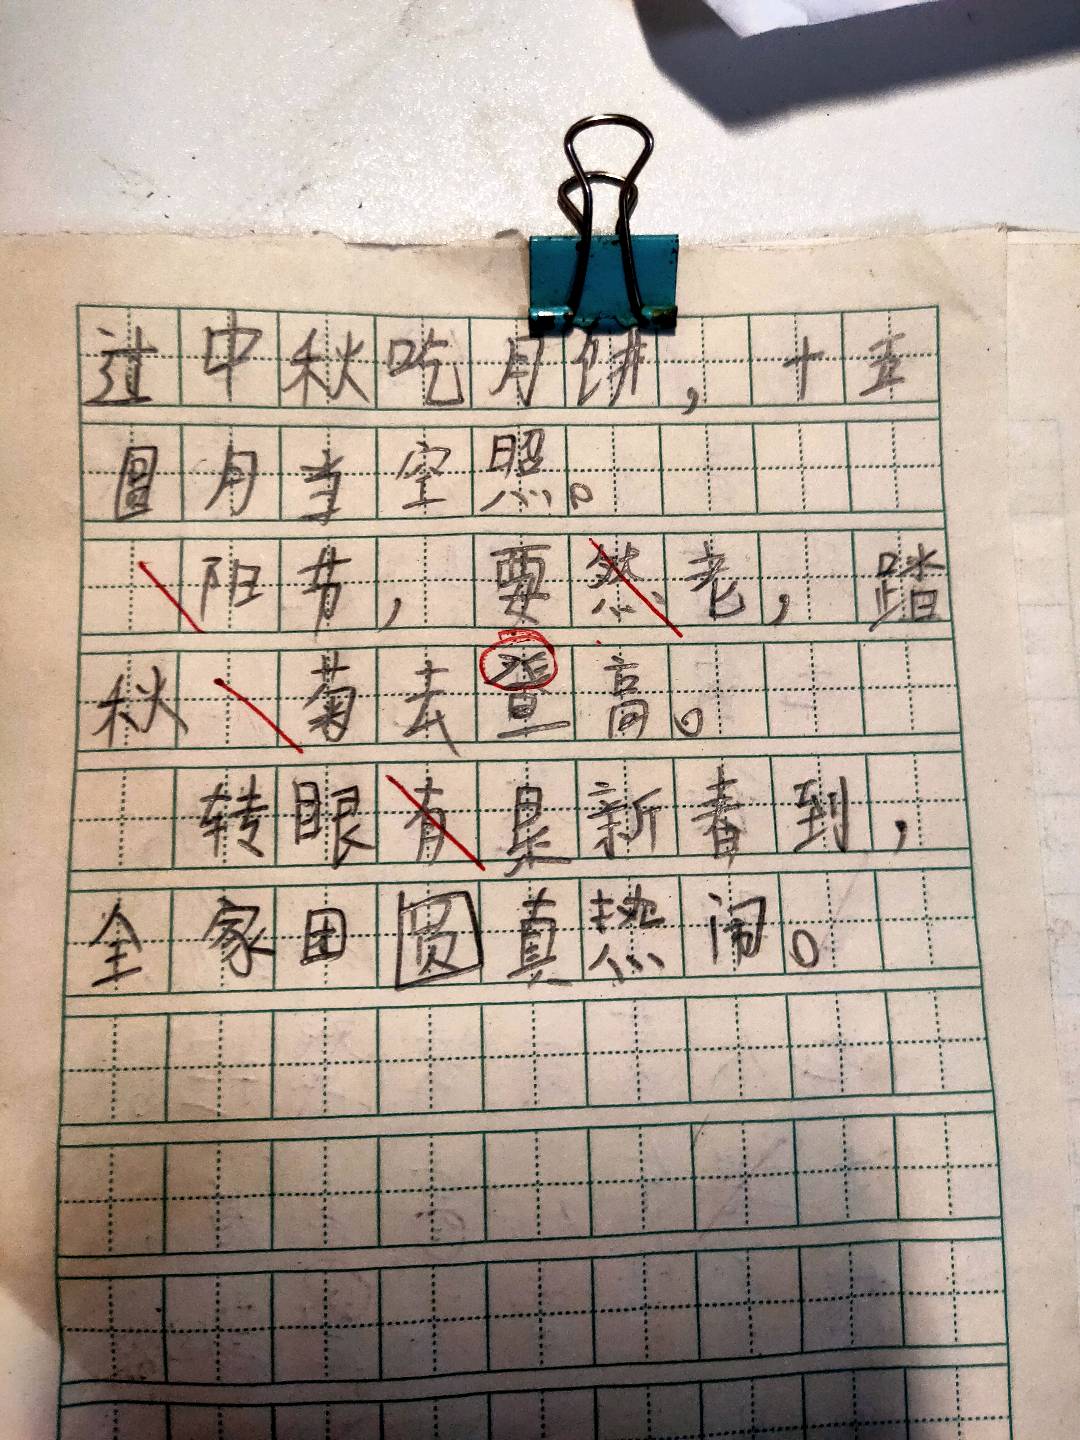 过中秋吃月饼，十五
圆月当空照。
阳节，要然老，踏
秋菊去登高。
转眼有是新春到，
全家团圆真热闹。